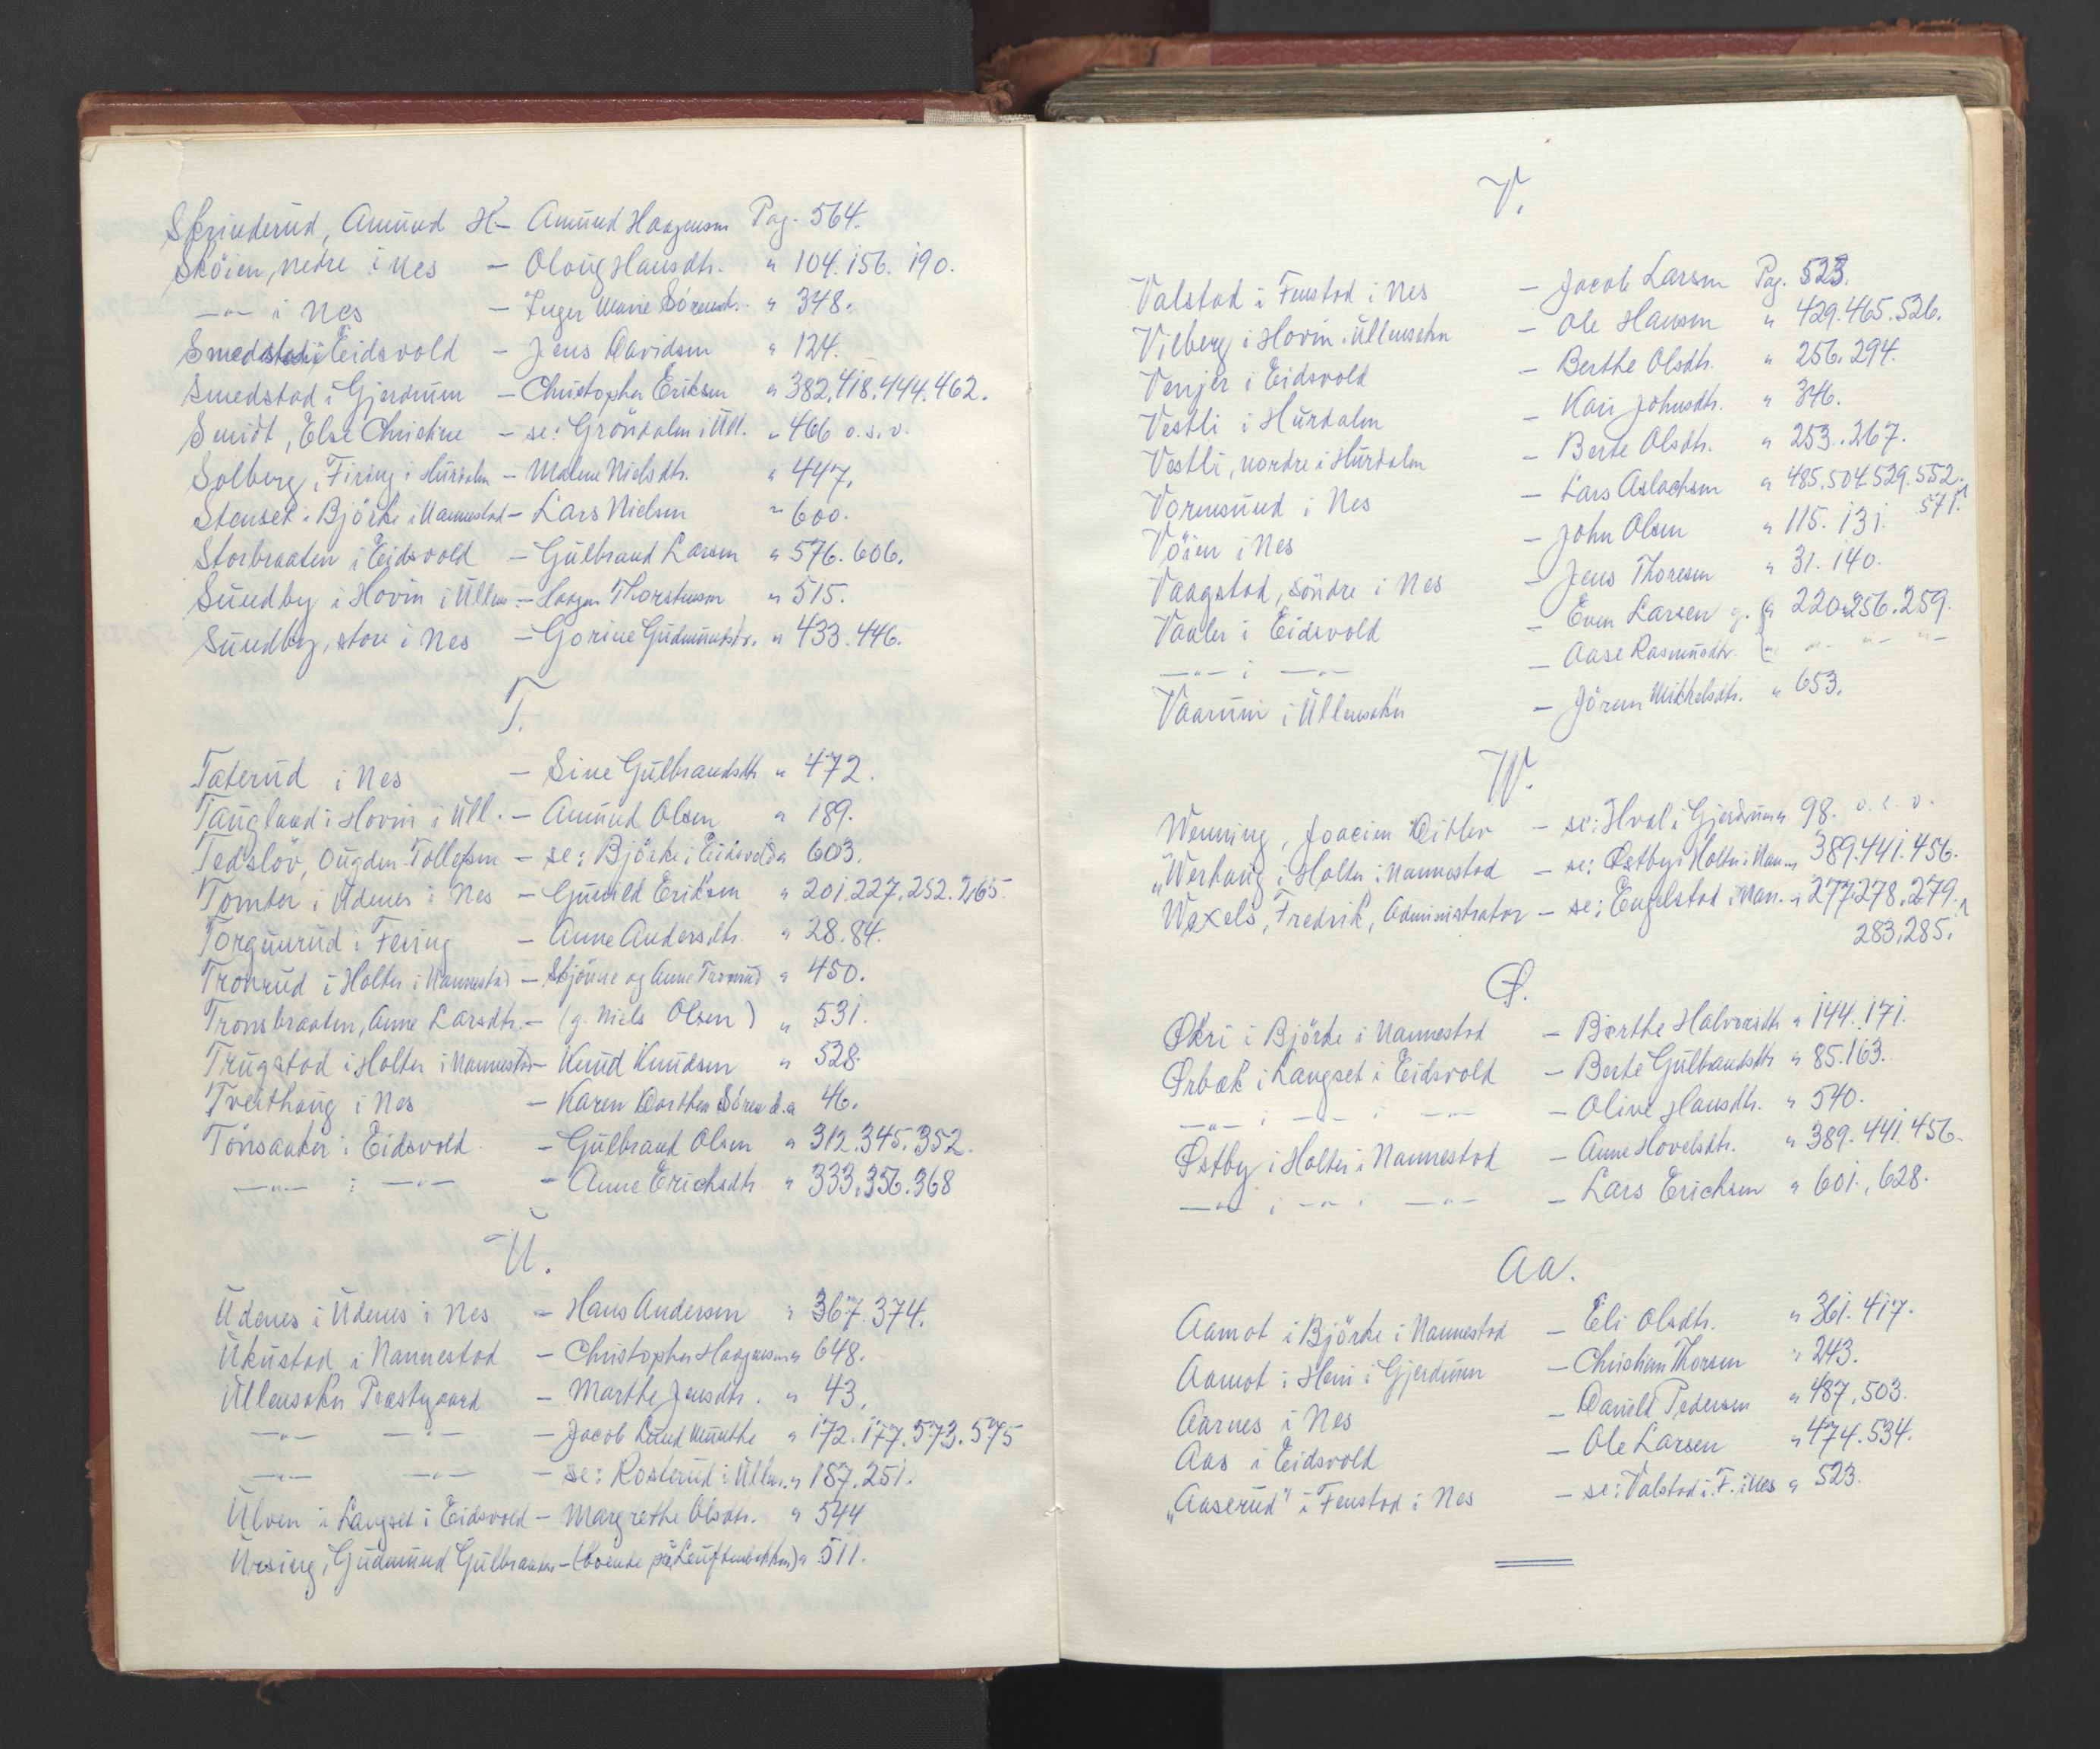 Skrinderud, Amund H. – Amund Haagensen Pag. 564.
Sköien, nedre i Nes – Oloug Hansdtr. " 104. 156. 190.
—"— i Nes – Inger Marie Sörensd. " 348.
Smedstad i Eidsvold – Jens Davidsen " 124.
Smedstad i Gjerdrum – Christopher Eriksen " 382. 418. 444. 462.
Smidt, Else Christine – se: Gröndalen i Ull. " 466 o.s.v.
Solberg i Firing i Hurdalen – Malene Nielsdtr. " 447.
Stenset i Björke i Nannestad – Lars Nielsen " 600.
Storbraaten i Eidsvold – Gulbrand Larsen " 576. 606.
Sundby i Hovin i Ullens. – Haagen Thorstensen " 515.
Sundby, store i Nes – Gorine Gudmundsdr. " 433. 446.
T.
Taterud i Nes – Sine Gulbrandsdtr " 472.
Taugland i Hovin i Ull. – Amund Olsen " 189.
Tedslöv, Ougden Tollefsen – se: Björke i Eidsvold " 603.
Tomter i Udenes i Nes – Gunild Eriksen " 201. 227. 252. 265
Torgunrud i Fering – Anne Andersdtr. " 28. 84.
Tronrud i Holter i Nannestad – Stjönne og Anne Tronrud " 450.
Tronsbraaten, Anne Larsdtr. – (g. Niels Olsen) " 531.
Trugstad i Holter i Nannestad – Knud Knudsen " 528.
Tveithaug i Nes – Karen Dorthea Sörensd. " 46.
Tönsaaker i Eidsvold – Gulbrand Olsen " 312. 345. 352.
—"— i —"— – Anne Erichsdtr " 333. 356. 368
U.
Udenes i Udenes i Nes – Hans Andersen " 367. 374.
Ukustad i Nannestad – Christopher Haagensen " 648.
Ullensaker Præstgaard – Marthe Jensdtr. " 43.
—"— —"— – Jacob Lund Munthe " 172. 177. 573. 575
—"— —"— – se: Rosterud i Ullens. " 187. 251.
Ulven i Langset i Eidsvold – Margrethe Olsdtr. " 544
Ursing, Gudmund Gulbrandsen – (boende på Leuftenbakken) " 511.
V.
Valstad i Fenstad i Nes – Jacob Larsen Pag. 523.
Vilberg i Hovin i Ullensaker – Ole Hansen " 429. 465. 526.
Venjer i Eidsvold – Berthe Olsdtr. " 256. 294.
Vestli i Hurdalen – Kari Johnsdtr. " 346.
Vestli, nordre i Hurdalen – Berte Olsdtr. " 253. 267.
Vormsund i Nes – Lars Aslachsen " 485. 504. 529. 552.
571.
Vöien i Nes – John Olsen " 115. 131.
Vaagstad, söndre i Nes – Jens Thoresen " 31. 140.
Vaaler i Eidsvold – Even Larsen g. { " 220. 256. 259.
—"— i —"— – Aase Rasmusdtr. { " —"— —"— —"—
Vaarum i Ullensaker – Jören Mikkelsdtr. " 653.
W.
Wenning, Joacim Ditlev – se: Hval i Gjerdrum " 98. o.s.v.
"Werhaug i Holter i Nannestad – se: Østby i Holter i Nan. " 389. 441. 456.
Wexels, Fredrik, Administrator – se: Engelstad i Nan. " 277. 278. 279.
283. 285.
Ø.
Økri i Björke i Nannestad – Berthe Halvorsdtr " 144. 171.
Ørbæk i Langset i Eidsvold – Berte Gulbrandsdtr " 85. 163.
—"— i —"— i —"— – Olive Hansdtr. " 540.
Østby i Holter i Nannestad – Anne Hovelsdtr. " 389. 441. 456.
—"— i —"— i —"— – Lars Erichsen " 601., 628.
Aa.
Aamot i Björke i Nannestad – Eli Olsdtr. " 361. 417.
Aamot i Heni i Gjerdrum – Christian Thorsen " 243.
Aarnes i Nes – Daniel Pedersen " 487, 503.
Aas i Eidsvold – Ole Larsen " 474. 534.
"Aaserud" i Fenstad i Nes – se: Valstad i F. i Nes " 523.